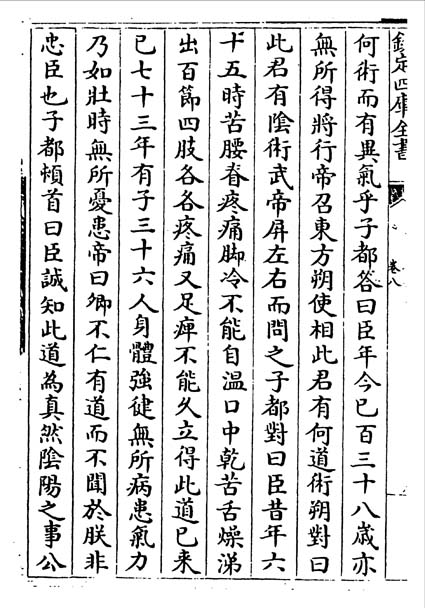 欽定四庫全書
卷八
何術而有異氣乎子都答曰臣年今已百三十八歲亦
無所得將行帝召東方朔使相此君有何道術朔對曰
此君有陰術武帝屏左右而問之子都對曰臣昔年六
十五時苦腰脊疼痛脚冷不能自温口中乾苦舌燥涕
出百節四肢各各疼痛又足痺不能久立得此道已来
已七十三年有子三十六人身體強健無所病患氣力
乃如壯時無所憂患帝曰卿不仁有道而不聞於朕非
忠臣也子都頓首曰臣誠知此道為真然陰陽之事公